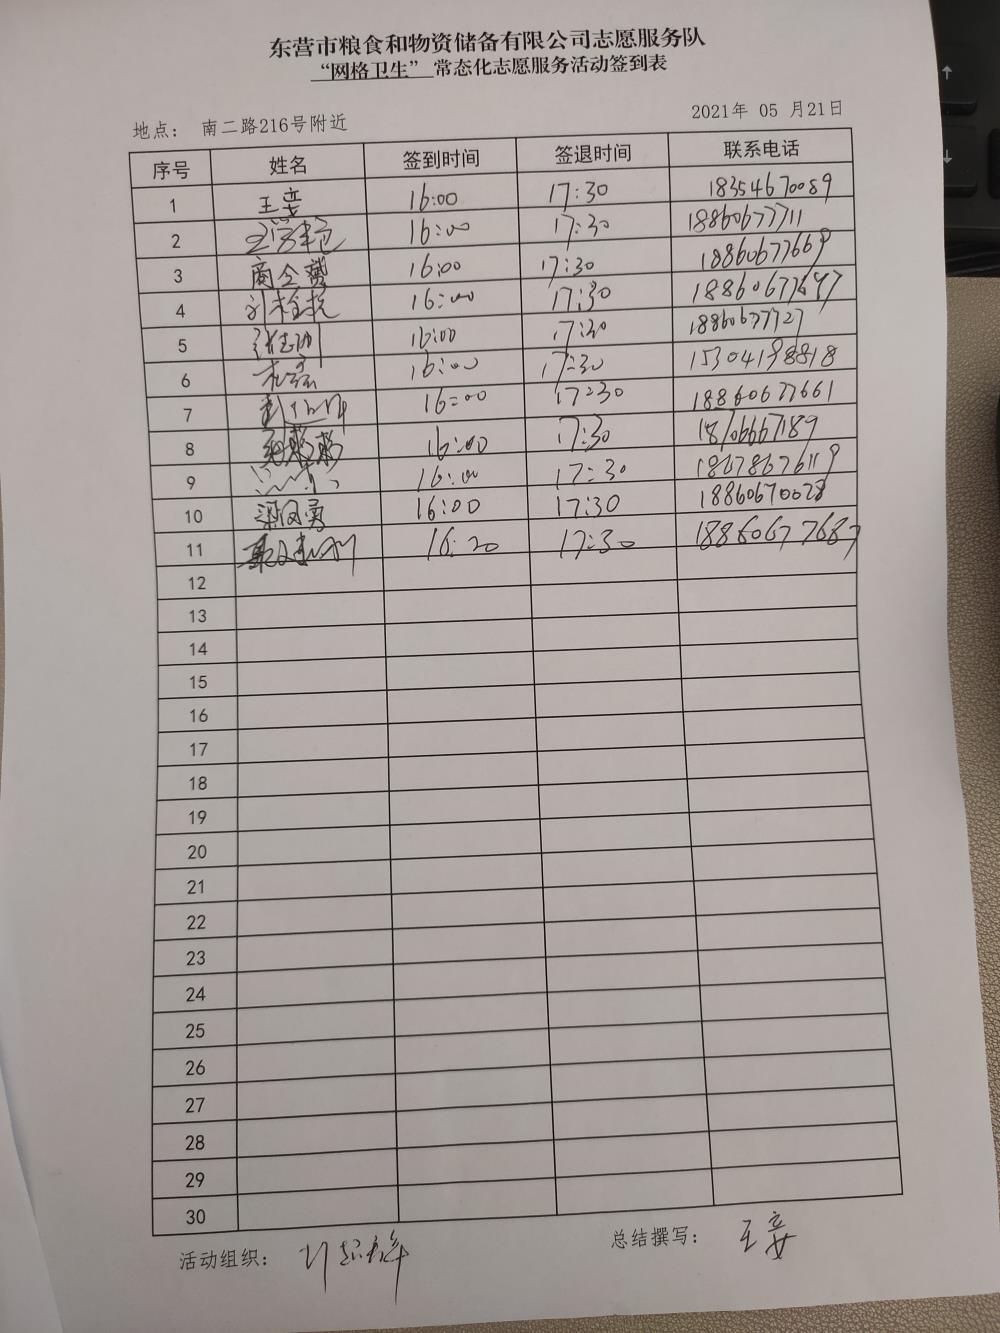 东营市粮食和物资储备有限公司志愿服务队
“网格卫生” 常态化志愿服务活动签到表
地点： 南二路216号附近 2021年 05 月21日
序号 姓名 签到时间 签退时间 联系电话
1 王 16:00 17:30 18354670089
2 16:00 17:30 18860677711
3 商 16:00 17:30 18860677669
4 16:00 17:30
5 张志刚 16:00 17:30 18860677727
6 16:00 17:30 15304198818
7 16:00 17:30 18860677661
8 16:00 17:30 18706667189
9 16:00 17:30 18678676119
10 梁 勇 16:00 17:30 18860670028
11 16:20 17:30 18860677687
12
13
14
15
16
17
18
19
20
21
22
23
24
25
26
27
28
29
30
活动组织： 总结撰写： 王